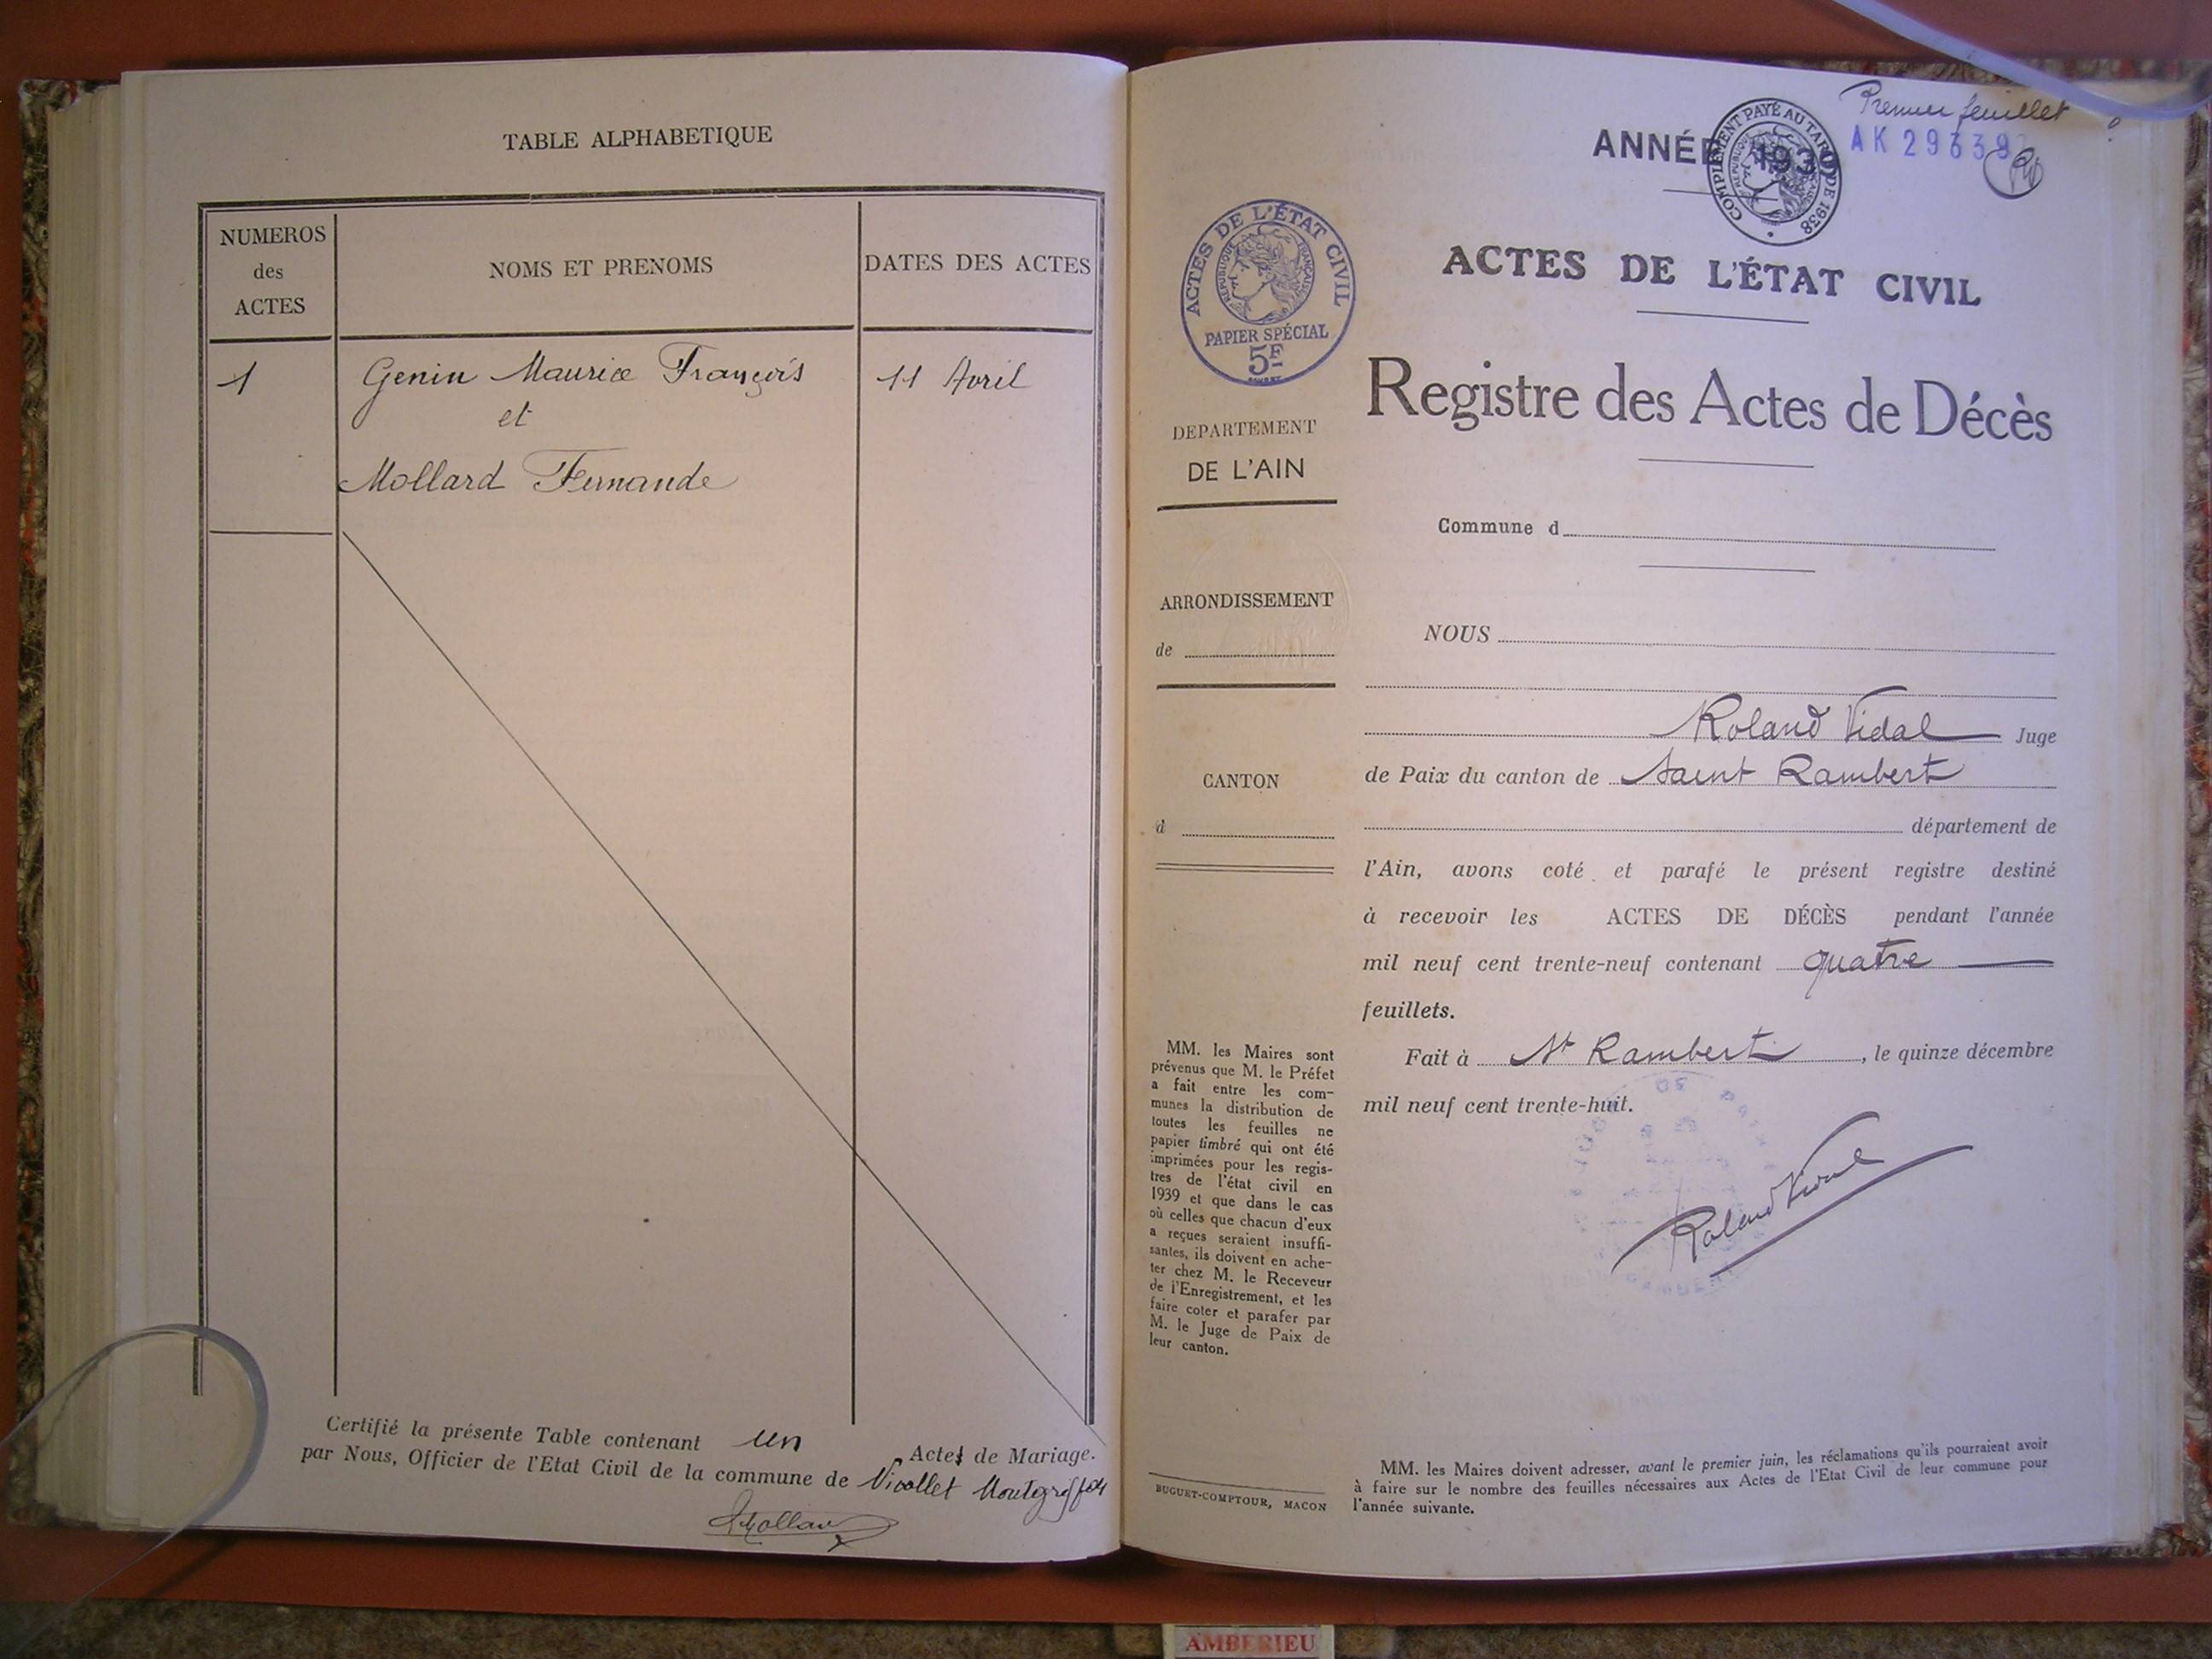 TABLE ALPHABETIQUE
NUMEROS
des
ACTES
NOMS ET PRENOMS
DATES DES ACTES
1
Genin Maurice François
11 Avril
et
Mollard Fernande
Certifié la présente Table contenant un Actes de Mariage.
par Nous, Officier de l'Etat Civil de la commune de Nivollet Montgriffon
Premier feuillet
ANNÉE 193
AK 29339
COMPLÉMENT PAYÉ AU TARIF DE 1938
RÉPUBLIQUE FRANÇAISE
ACTES DE L'ÉTAT CIVIL
RÉPUBLIQUE FRANÇAISE
PAPIER SPÉCIAL
5F
ACTES DE L'ÉTAT CIVIL
Registre des Actes de Décès
DEPARTEMENT
DE L'AIN
ARRONDISSEMENT
de
CANTON
d
MM. les Maires sont
prévenus que M. le Préfet
a fait entre les com-
munes la distribution de
toutes les feuilles ne
papier timbré qui ont été
imprimées pour les regis-
tres de l'état civil en
1939 et que dans le cas
où celles que chacun d'eux
a reçues seraient insuffi-
santes, ils doivent en ache-
ter chez M. le Receveur
de l'Enregistrement, et les
faire coter et parafer par
M. le Juge de Paix de
leur canton.
BUGUET-COMPTOUR, MACON
Commune d
NOUS
Roland Vidal Juge
de Paix du canton de Saint Rambert
département de
l'Ain, avons coté et parafé le présent registre destiné
à recevoir les ACTES DE DÉCÈS pendant l'année
mil neuf cent trente-neuf contenant quatre
feuillets.
Fait à St Rambert, le quinze décembre
mil neuf cent trente-huit.
Roland Vidal
MM. les Maires doivent adresser, avant le premier juin, les réclamations qu'ils pourraient avoir
à faire sur le nombre des feuilles nécessaires aux Actes de l'Etat Civil de leur commune pour
l'année suivante.
AMBERIEU